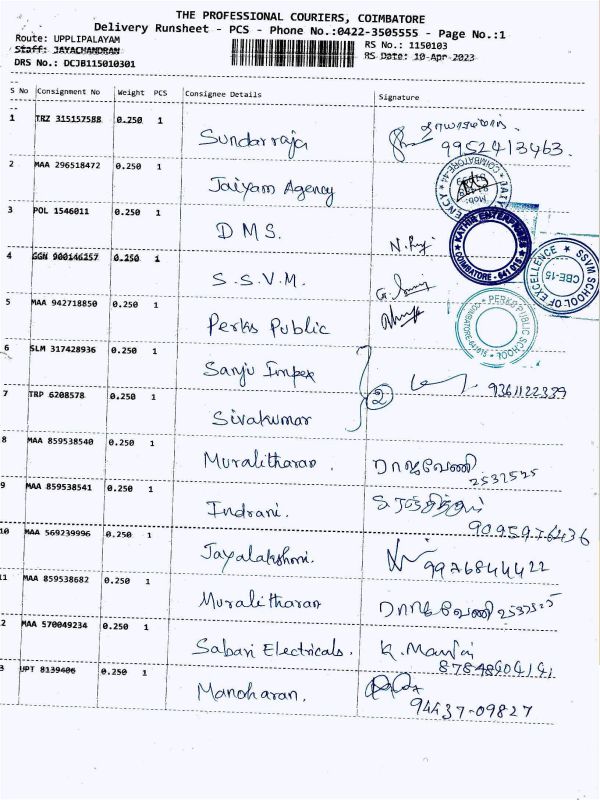 THE PROFESSIONAL COURIERS, COIMBATORE
Delivery Runsheet - PCS - Phone No.:0422-3505555 - Page No.:1
Route: UPPLIPALAYAM
RS No.: 1150103
Staff: JAYACHANDRAN
RS Date: 10-Apr-2023
DRS No.: DCJB115010301
S No Consignment No Weight PCS Consignee Details Signature
1 TRZ 315157588 0.250 1 Sundarraja 9952413463.
2 MAA 296518472 0.250 1 Jaiyam Agency
3 POL 1546011 0.250 1 D M S.
KATHIR ENTERPRISES COIMBATORE - 641 015
4 GGN 900146257 0.250 1 S.S.V.M.
SSVM SCHOOL OF EXCELLENCE CBE-15
5 MAA 942718850 0.250 1 Perks Public
PERKS PUBLIC SCHOOL COIMBATORE-641015
6 SLM 317428936 0.250 1 Sanju Impex
2 9361122339
7 TRP 6208578 0.250 1 Sivakumar
8 MAA 859538540 0.250 1 Muralitharan. 2532525
9 MAA 859538541 0.250 1 Indrani. 9095976436
10 MAA 569239996 0.250 1 Jayalakshmi. 9976844422
11 MAA 859538682 0.250 1 Muralitharan 2532525
2 MAA 570049234 0.250 1 Sabari Electricals.
3 UPT 8139406 0.250 1 Manoharan. 94437-09827